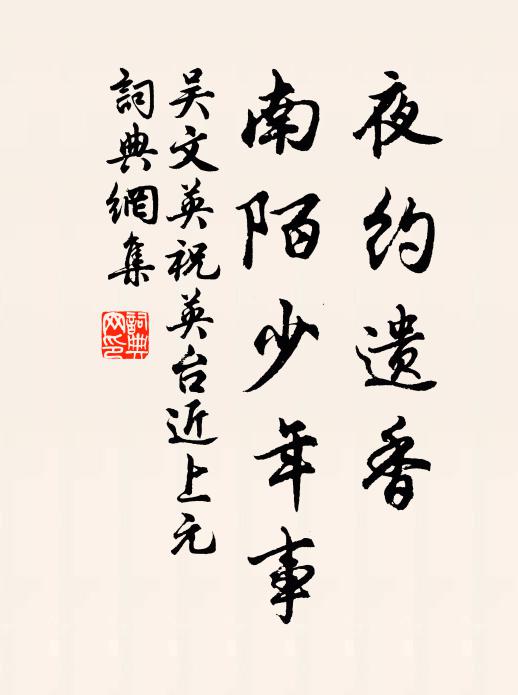 夜约遗香
南陌少年事
吴文英祝英台近上元
詞典網集
詞典